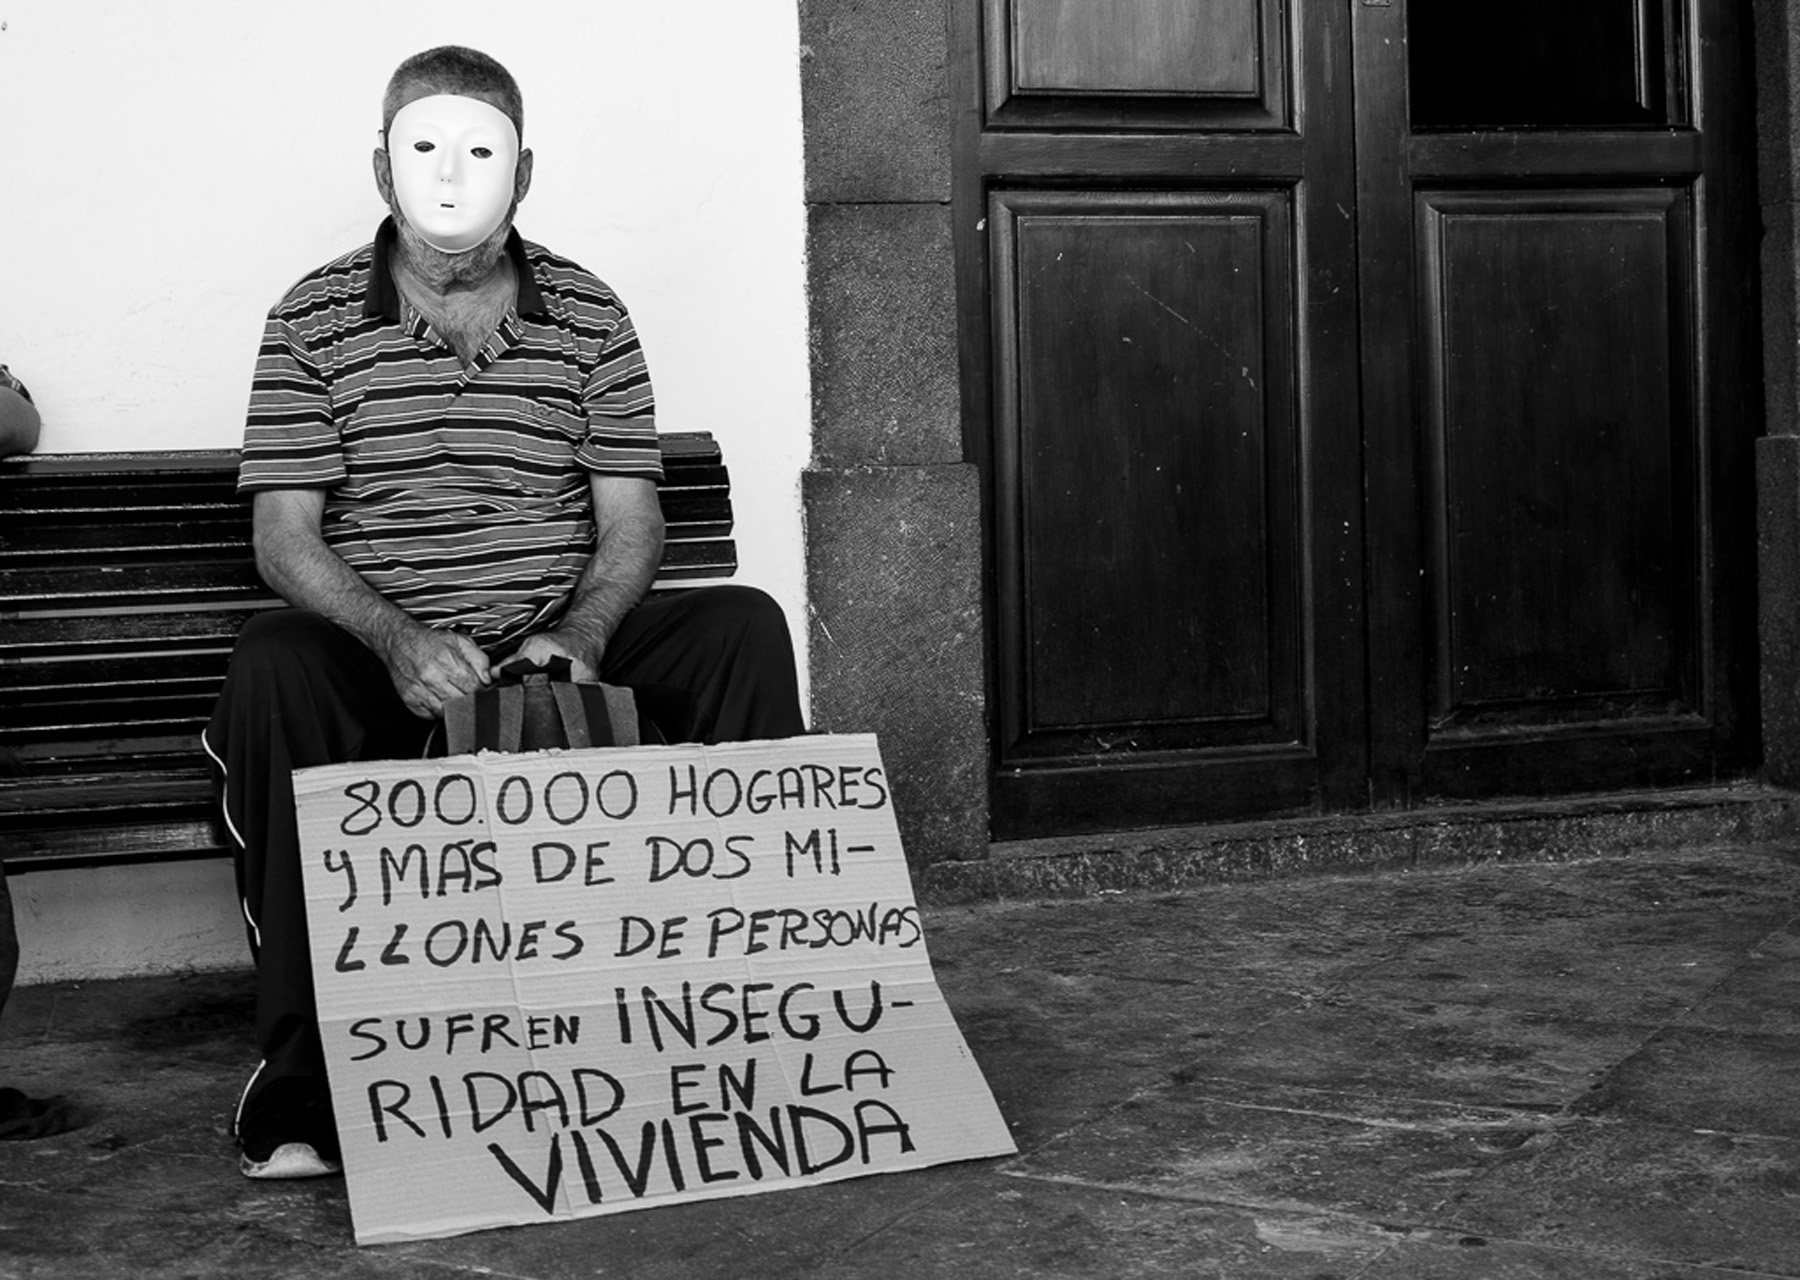 800.000 HOGARES
Y MÁS DE DOS MI-
LLONES DE PERSONAS
SUFREN INSEGU-
RIDAD EN LA
VIVIENDA